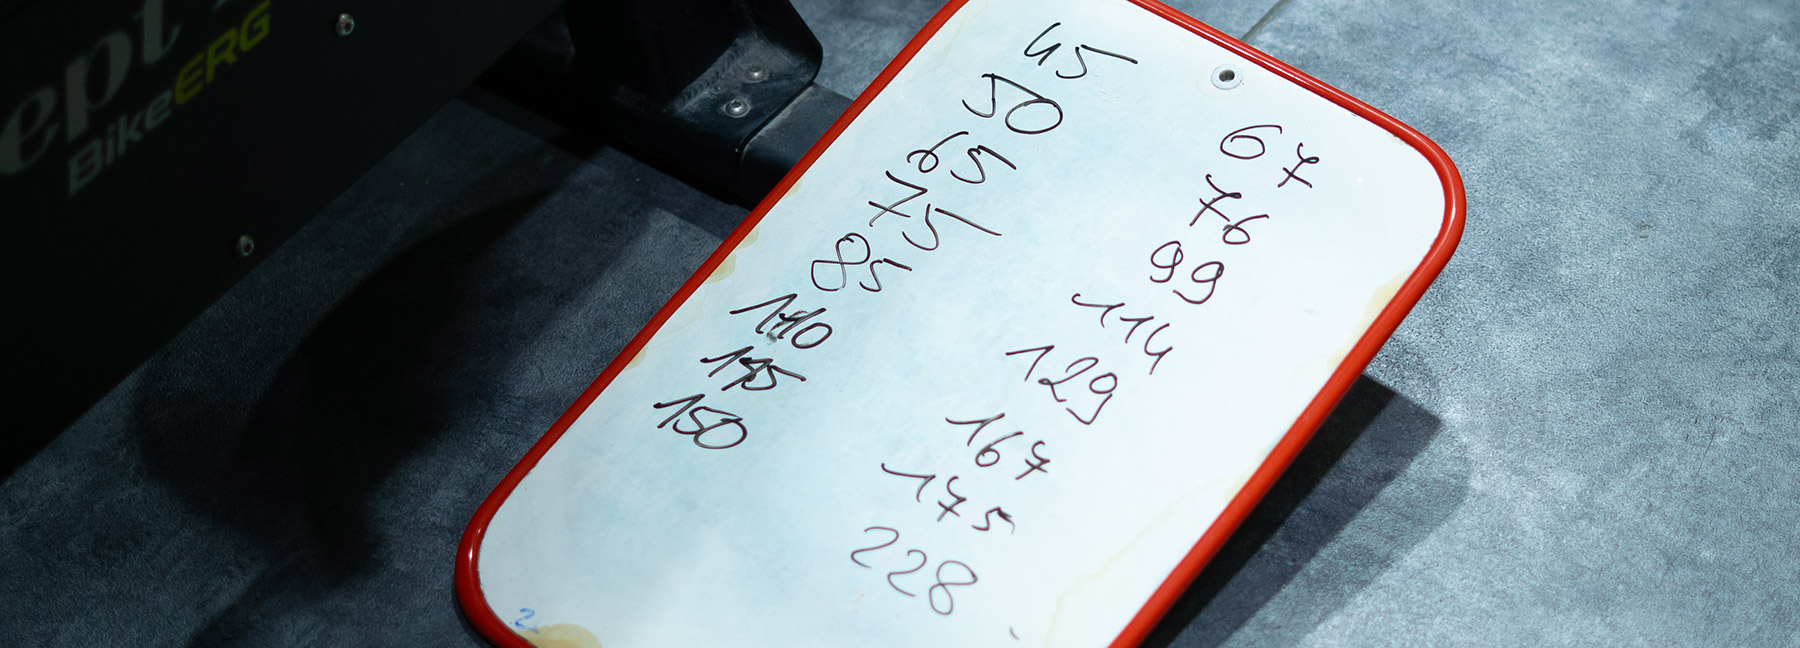 ept
BikeERG
45
50
65
75
85
110
67
76
99
114
129
167
175
228
150
2